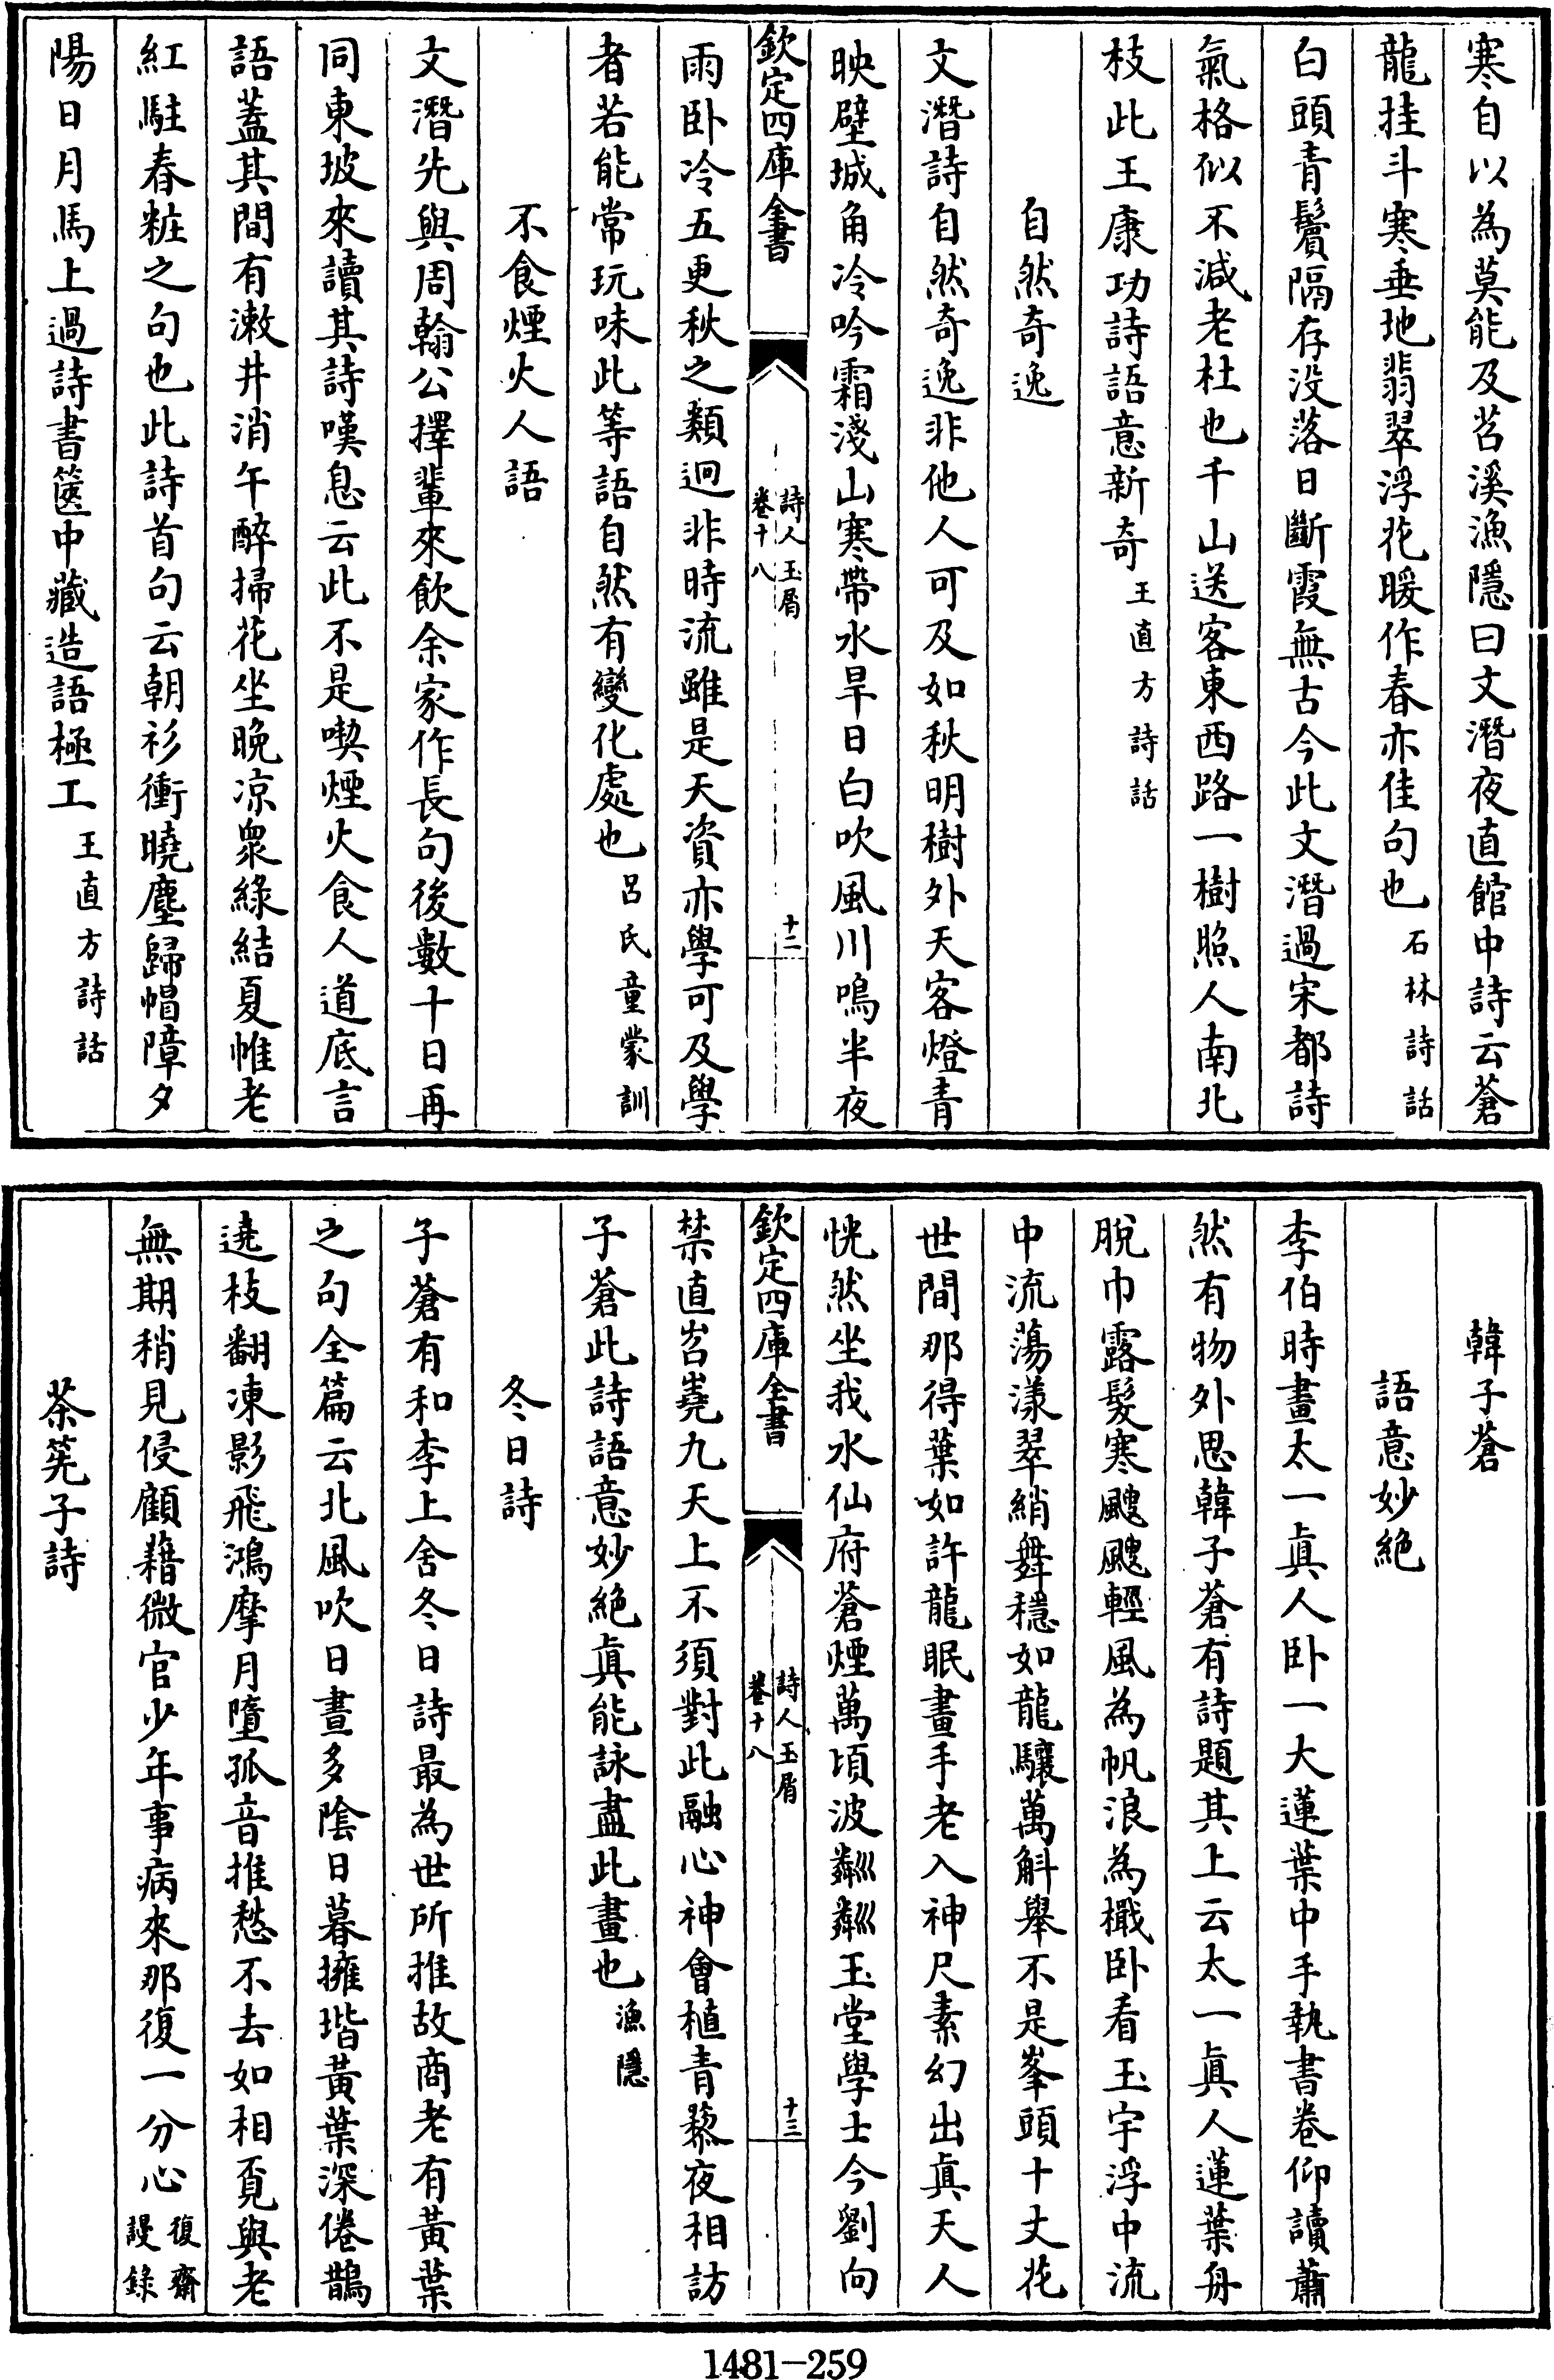 寒自以為莫能及苕溪漁隱曰文潛夜直館中詩云蒼
龍挂斗寒垂地翡翠浮花暖作春亦佳句也石林詩話
白頭青鬢隔存没落日斷霞無古今此文潛過宋都詩
氣格似不減老杜也千山送客東西路一樹照人南北
枝此王康功詩語意新奇王直方詩話
自然奇逸
文潛詩自然奇逸非他人可及如秋明樹外天客燈青
映壁城角冷吟霜淺山寒帶水旱日白吹風川鳴半夜
欽定四庫全書
詩人玉屑
卷十八
十二
雨卧冷五更秋之類迥非時流雖是天資亦學可及學
者若能常玩味此等語自然有變化處也呂氏童蒙訓
不食煙火人語
文潛先與周翰公擇輩來飲余家作長句後數十日再
同東坡來讀其詩嘆息云此不是喫煙火食人道底言
語蓋其間有漱井消午醉掃花坐晚凉衆綠結夏帷老
紅駐春粧之句也此詩首句云朝衫衝曉塵歸帽障夕
陽日月馬上過詩書篋中藏造語極工王直方詩話
韓子蒼
語意妙絶
李伯時畫太一真人卧一大蓮葉中手執書卷仰讀蕭
然有物外思韓子蒼有詩題其上云太一真人蓮葉舟
脫巾露髮寒颼颼輕風為帆浪為檝卧看玉宇浮中流
中流蕩漾翠綃舞穩如龍驤萬斛舉不是峯頭十丈花
世間那得葉如許龍眠畫手老入神尺素幻出真天人
恍然坐我水仙府蒼煙萬頃波粼粼玉堂學士今劉向
欽定四庫全書
詩人玉屑
卷十八
十三
禁直岧嶤九天上不須對此融心神會植青藜夜相訪
子蒼此詩語意妙絶真能詠盡此畫也漁隱
冬日詩
子蒼有和李上舍冬日詩最為世所推故商老有黃葉
之句全篇云北風吹日晝多陰日暮擁堦黃葉深倦鵲
遶枝翻凍影飛鴻摩月墮孤音推愁不去如相覔與老
無期稍見侵顧藉微官少年事病來那復一分心復齋謾錄
茶筅子詩
1481-259